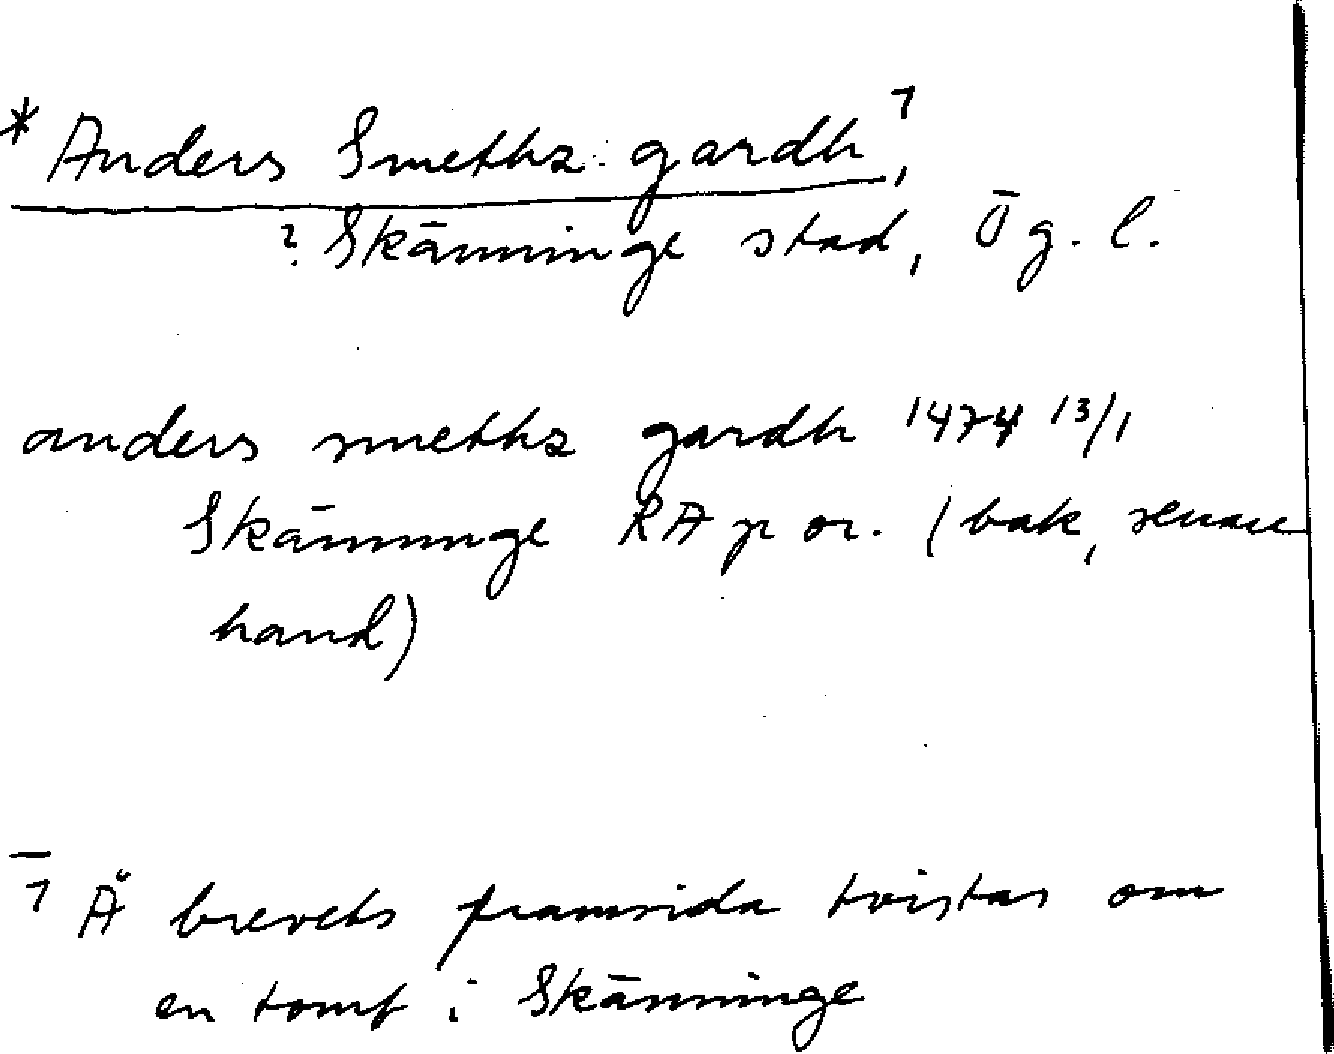 * Anders Smeths gardh,¹
? Skänninge stad, Ög. l.
anders smeths gardh 1474 13/1
Skänninge RA p or. (bak, senare
hand)
1 Å brevets framsida tvistas om
en tomt i Skänninge